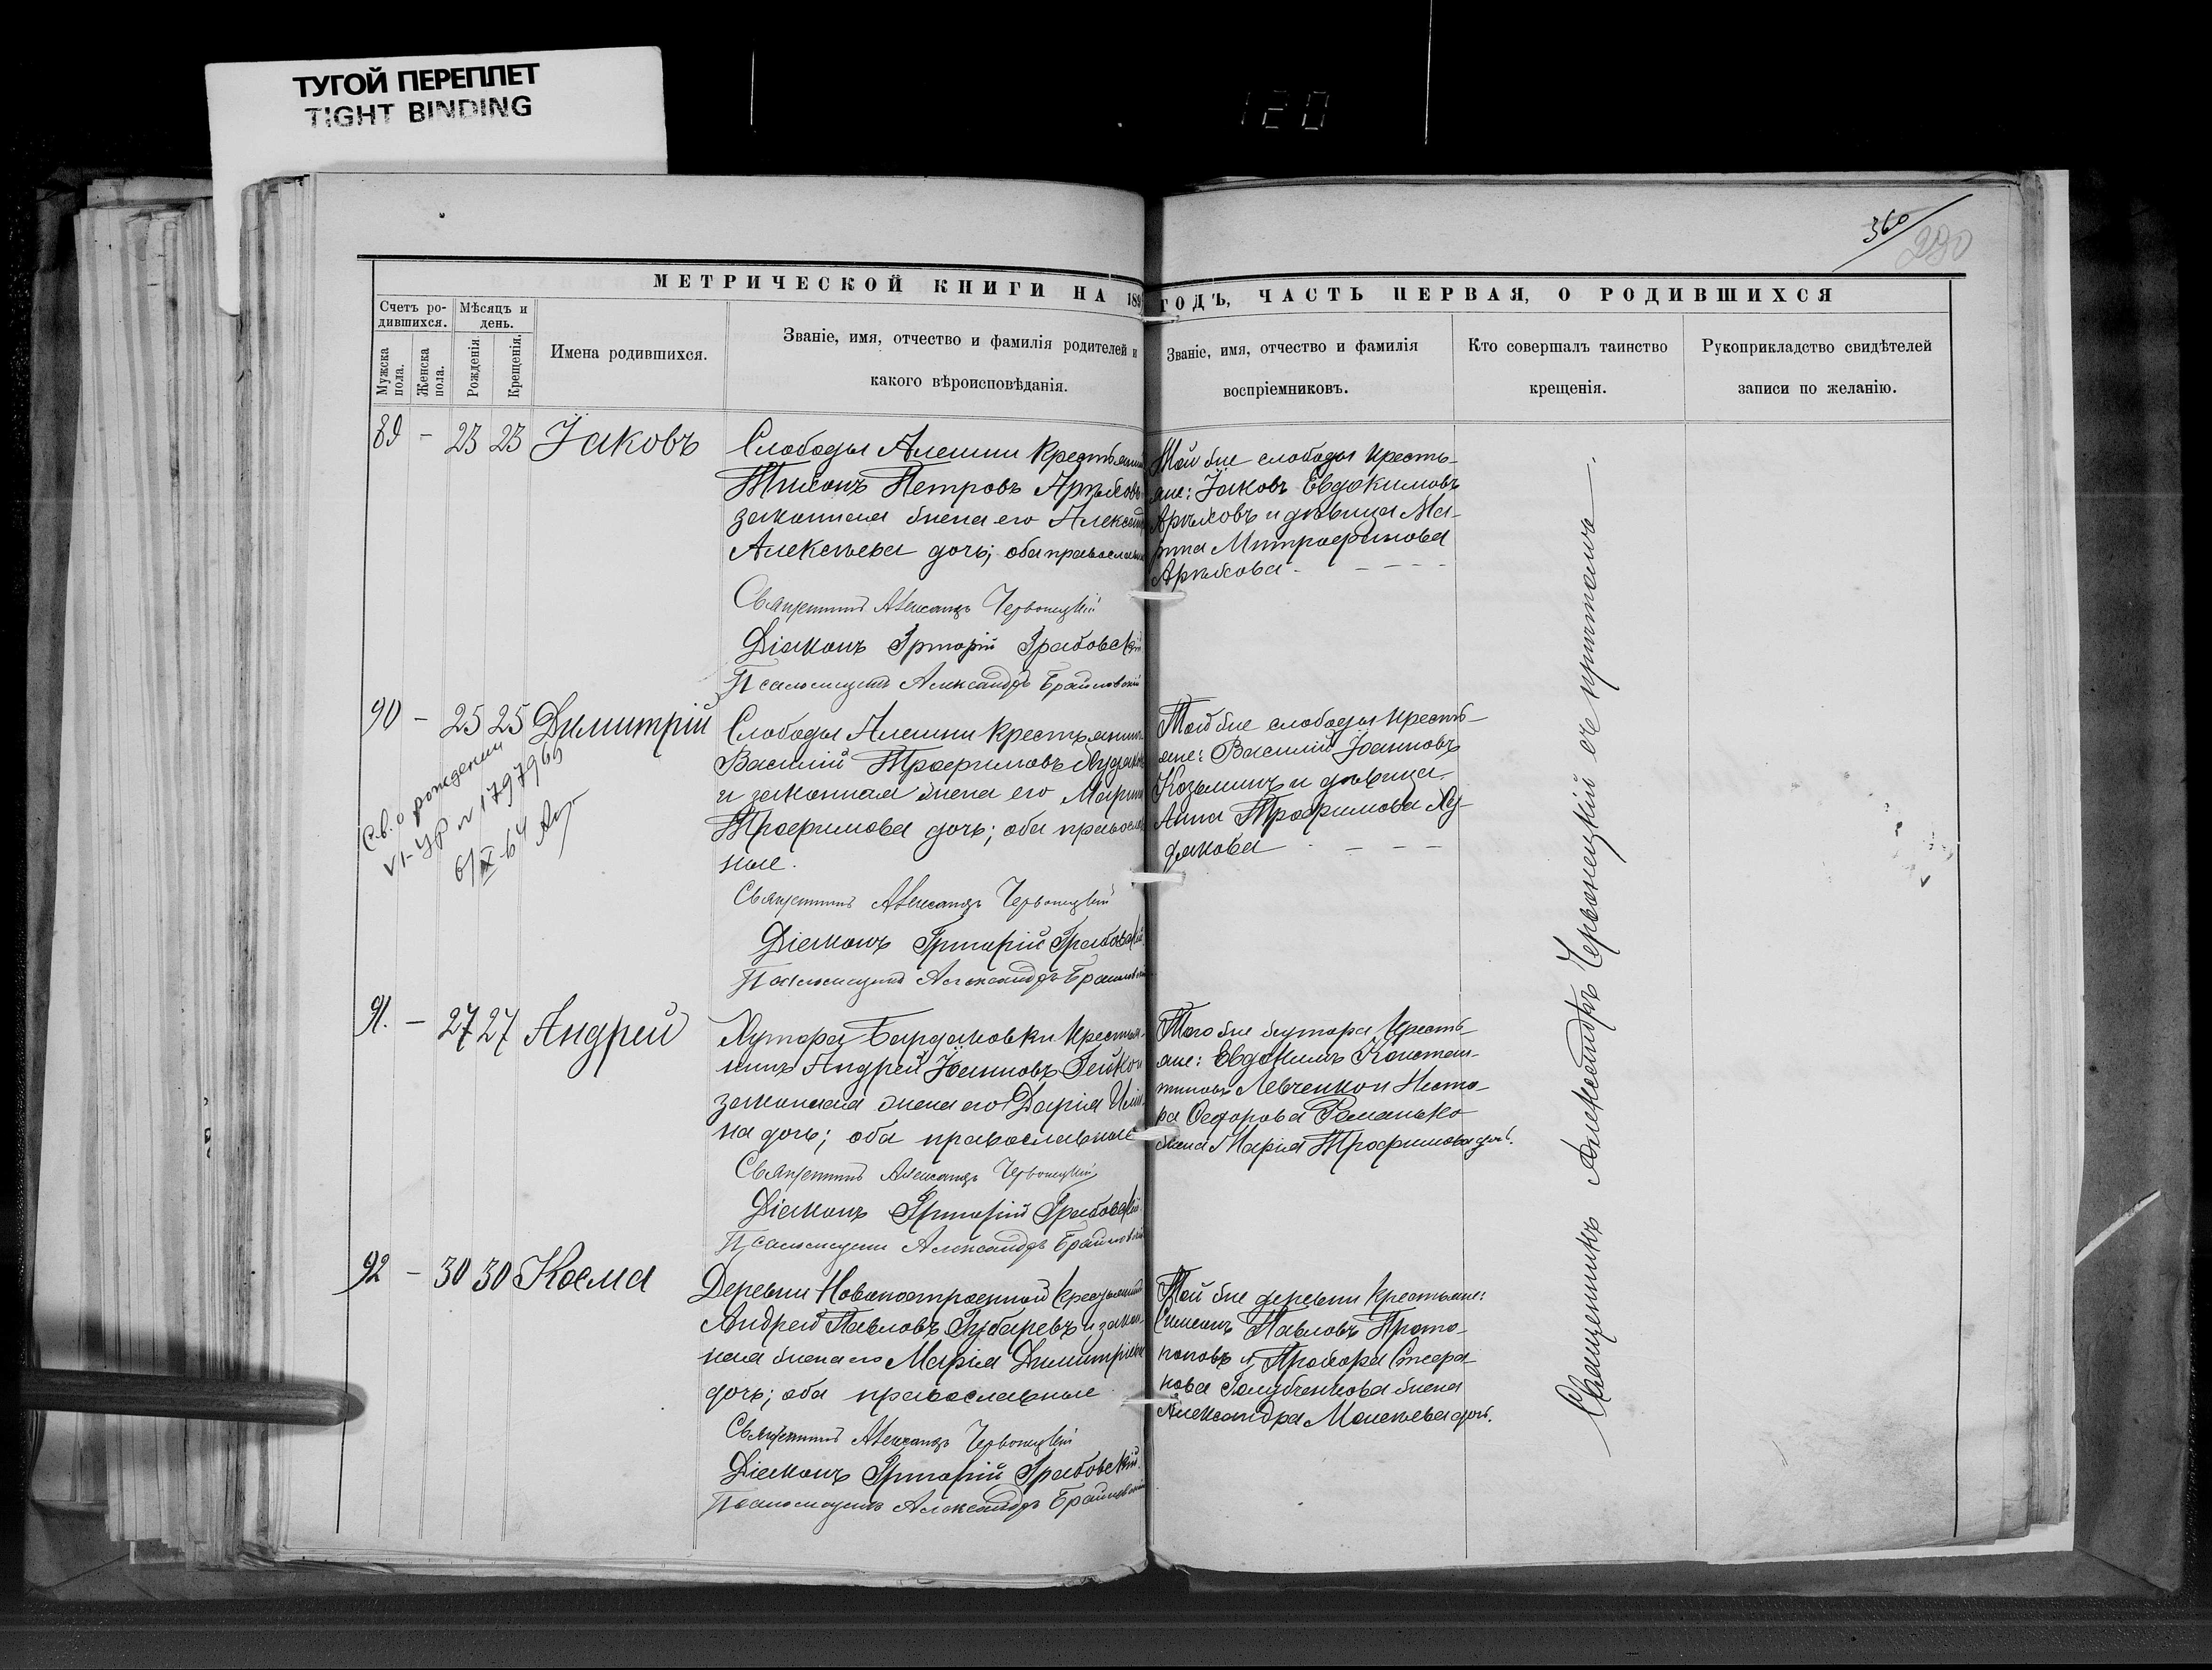 ТУГОЙ ПЕРЕПЛЕТ
TIGHT BINDING
120
360
280
МЕТРИЧЕСКОЙ КНИГИ НА 189 ГОДЪ, ЧАСТЬ ПЕРВАЯ, О РОДИВШИХСЯ
Счетъ ро-
дившихся.
Мѣсяцъ и
день.
Мужска
пола.
Женска
пола.
Рожденія.
Крещенія.
Имена родившихся.
Званіе, имя, отчество и фамилія родителей и
какого вѣроисповѣданія.
Званіе, имя, отчество и фамилія
воспріемниковъ.
Кто совершалъ таинство
крещенія.
Рукоприкладство свидѣтелей
записи по желанію.
89 - 23 23 Іаковъ
Слободы Алешни крестьянин
Тихонъ Петровъ
законная жена его
Алексѣева дочь; оба православн
Священникъ Александръ Червонецкій
Діаконъ Григорій Грабовскій
Псаломщикъ Александръ
Той же слободы кресть-
яне: Іаковъ Евдокимовъ
и дѣвица Ма-
Митрофанова
90 - 25 25 Димитрій
Св. о рождении
VI-УР № 1797969
6/IX-64
Слободы Алешни крестьянинъ
Василій Трофимовъ Худяков
и законная жена его
Трофимова дочь; оба правосла
ные.
Священникъ Александръ Червонецкій
Діаконъ Григорій Грабовскій
Псаломщикъ Александръ
Той же слободы кресть-
яне: Василій Іоанновъ
и дѣвица
Анна Трофимова Ху-
дякова
91. - 27 27 Андрей
Хутора крестья
нинъ Андрей Іоанновъ
законная жена его Дарія
на дочь; оба православные
Священникъ Александръ Червонецкій
Діаконъ Григорій Грабовскій
Псаломщикъ Александръ
Того же хутора кресть-
яне: Евдокимъ Констан-
тиновъ Левченко и Несто-
ра Ѳедорова
жена Марія Трофимова доч.
92 - 30 30 Косма
Деревни Новопостроенной крестьянинъ
Андрей Павловъ Губаревъ и закон-
ная жена его Марія Димитріева
дочь; оба православные
Священникъ Александръ Червонецкій
Діаконъ Григорій Грабовскій
Псаломщикъ Александръ
Той же деревни крестьяне:
Симеонъ Павловъ Прото-
поповъ и Прохора Стефа-
нова Голубченкова жена
Александра Моисеева доч.
Священникъ Александръ Червонецкій съ причтомъ